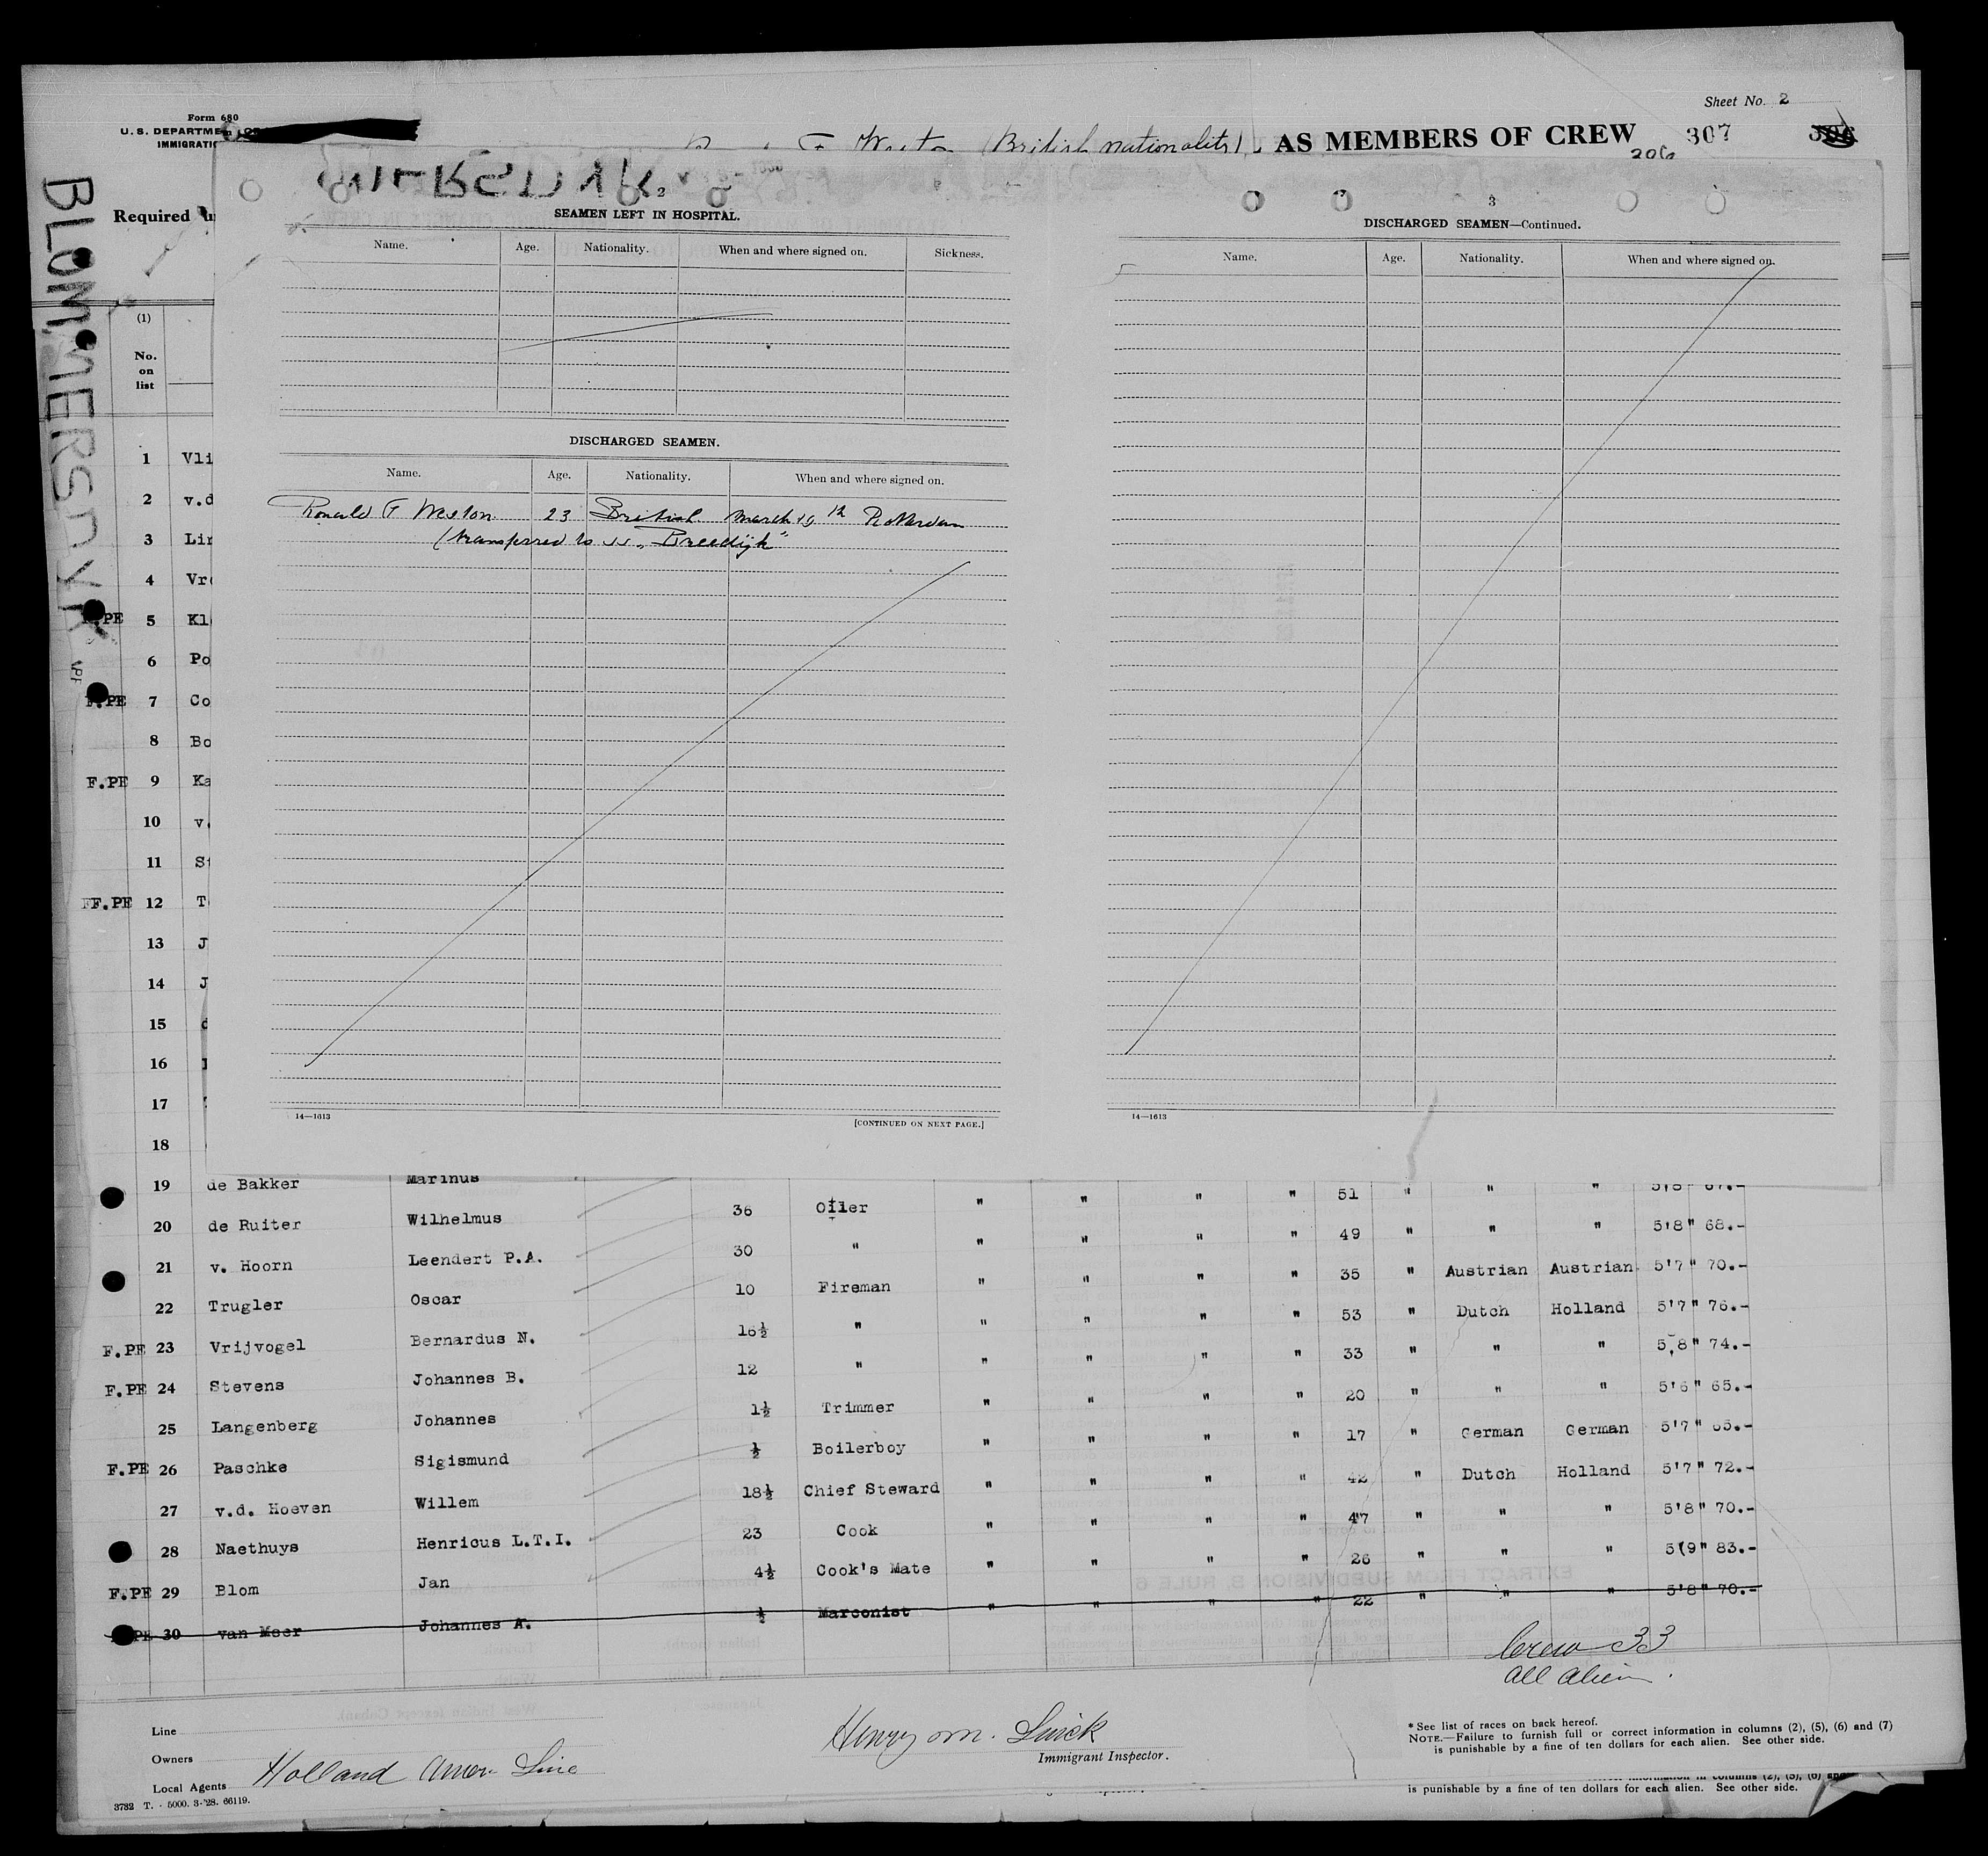 Form 680
U. S. DEPARTMEN
IMMIGRATIO
Sheet No. 2
(British nationality) AS MEMBERS OF CREW 307
206
BLOMMERSDYK
Required
(1)
No.
on
list
2
SEAMEN LEFT IN HOSPITAL.
Name. Age. Nationality. When and where signed on. Sickness.
DISCHARGED SEAMEN.
Name. Age. Nationality. When and where signed on.
Ronald T Weston 23 British March 19th Rotterdam
(transferred to ss. "Breedijk"
14—1613 [CONTINUED ON NEXT PAGE.]
3
DISCHARGED SEAMEN—Continued.
Name. Age. Nationality. When and where signed on.
14—1613
1 Vli
2 v.d
3 Lir
4 Vr
F.PE 5 Kl
6 Po
F.PE 7 Co
8 Bo
F.PE 9 Ka
10 v.
11 St
F.PE 12 T
13 J
14 J
15 d
16
17
18
19 de Bakker Marinus
20 de Ruiter Wilhelmus 36 Oiler " " " " 51 " " " 5'8" 67.-
21 v. Hoorn Leendert P.A. 30 " " " " " 49 " " " 5'8" 68.-
22 Trugler Oscar 10 Fireman " " " " 35 " Austrian Austrian 5'7" 70.-
F.PE 23 Vrijvogel Bernardus N. 16½ " " " " " 53 " Dutch Holland 5'7" 76.-
F.PE 24 Stevens Johannes B. 12 " " " " " 33 " " " 5'8" 74.-
25 Langenberg Johannes 1½ Trimmer " " " " 20 " " " 5'6" 65.-
F.PE 26 Paschke Sigismund ½ Boilerboy " " " " 17 " German German 5'7" 65.-
27 v.d. Hoeven Willem 18½ Chief Steward " " " " 42 " Dutch Holland 5'7" 72.-
28 Naethuys Henricus L.T.I. 23 Cook " " " " 47 " " " 5'8" 70.-
F.PE 29 Blom Jan 4½ Cook's Mate " " " " 26 " " " 5(9" 83.-
PE 30 van Meer Johannes A. ½ Marconist " " " " 22 " " " 5'8" 70.-
Crew 33
All Alien.
Line
Owners
Local Agents Holland Amer Line
Henry M.
Immigrant Inspector.
* See list of races on back hereof.
NOTE.—Failure to furnish full or correct information in columns (2), (5), (6) and (7)
is punishable by a fine of ten dollars for each alien. See other side.
3732 T. - 5000. 3-'28. 66119.
is punishable by a fine of ten dollars for each alien. See other side.